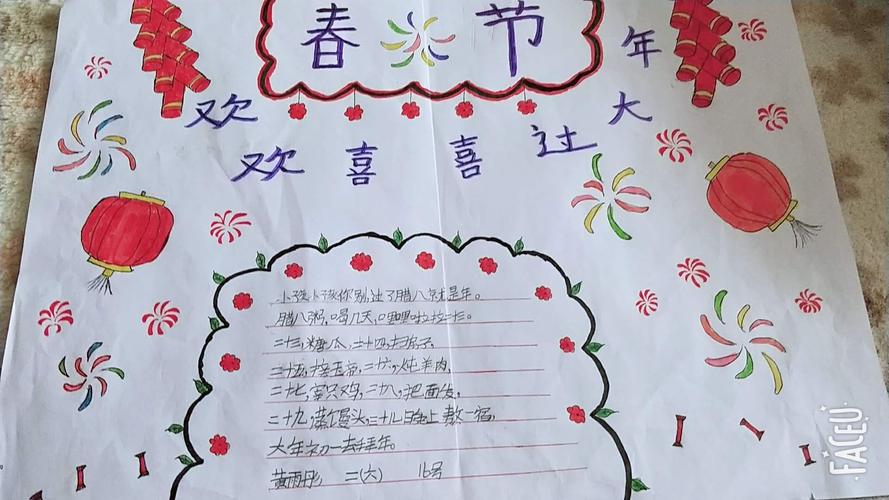 春节
欢欢喜喜过大年
小孩小孩你别, 过了腊八就是年。
腊八粥, 喝几天, 哩哩啦啦二十三。
二十三, 糖瓜, 二十四, 扫房子
二十五, 接玉帝, 二十六, 炖羊肉,
二十七, 宰只鸡, 二十八, 把面发,
二十九, 蒸馒头, 三十儿晚上熬一宿,
大年初一去拜年。
黄雨彤, 二(六) 16号
FACEU